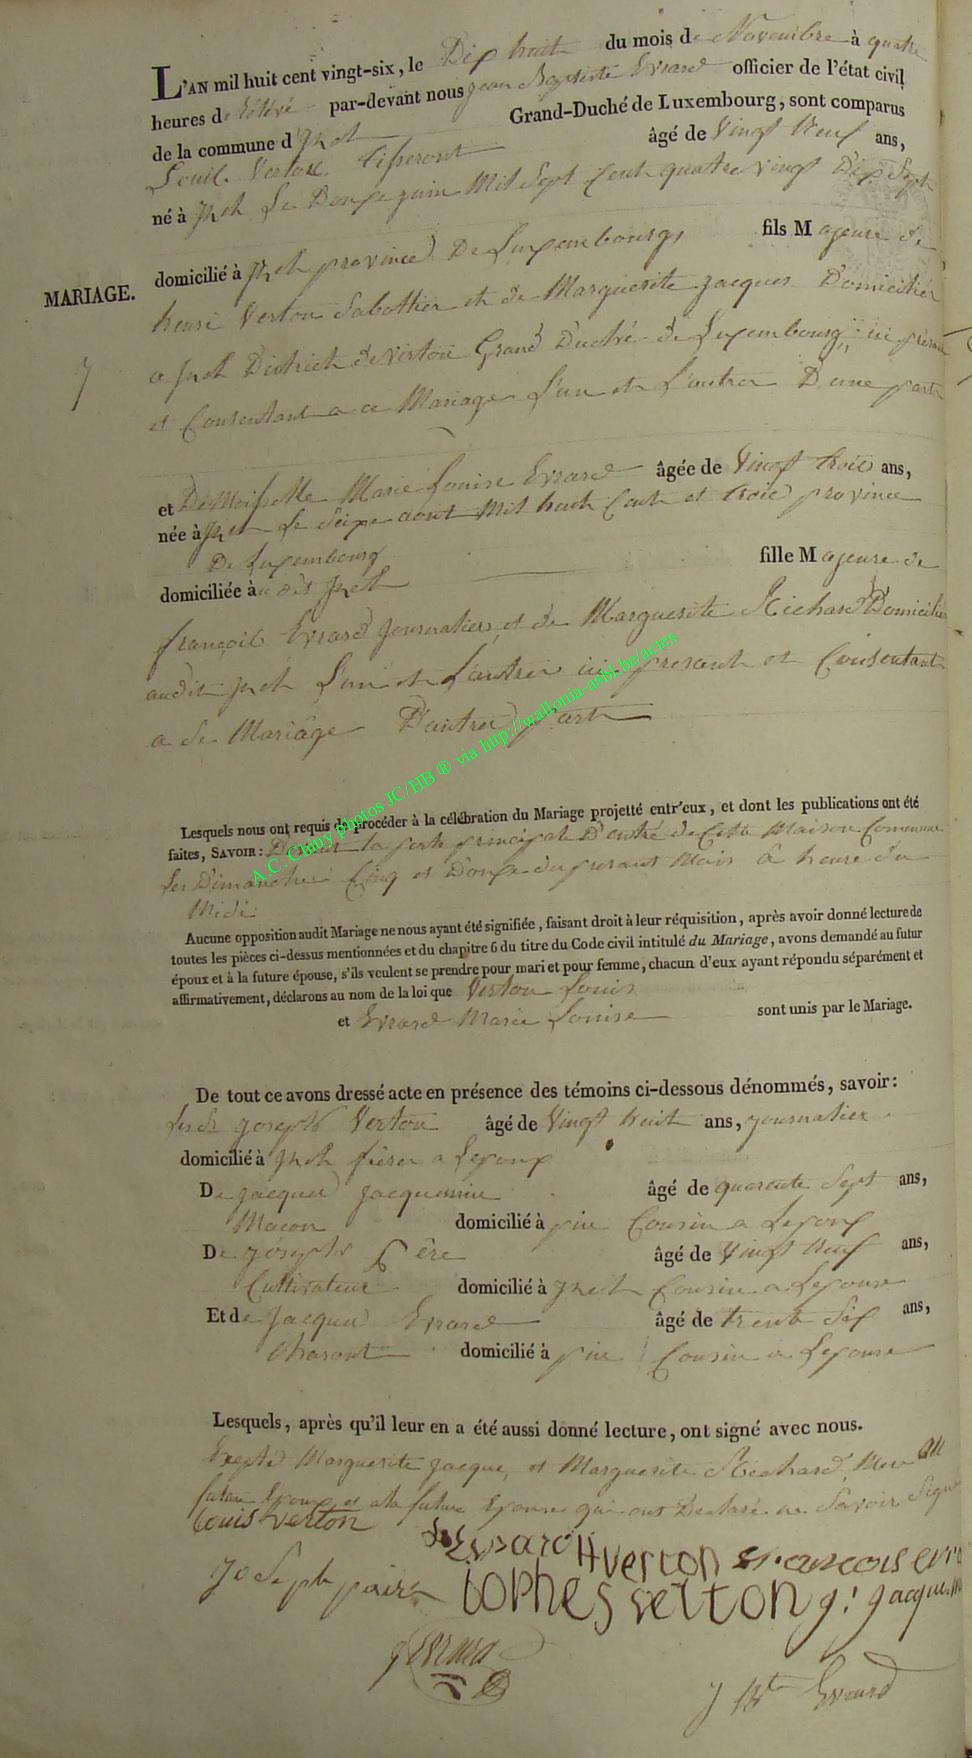 L'AN mil huit cent vingt-six, le Dix huit du mois de Novembre à quatre
heures de rélévé par-devant nous jean Baptiste Evrard officier de l'état civil
de la commune d'Izel Grand-Duché de Luxembourg, sont comparus
Louis Verton Tisserant âgé de Vingt neuf ans,
né à Izel Le Douze juin Mil Sept Cent quatre vingt Dix Sept
domicilié à Izel province De Luxembourg, fils Majeure de
MARIAGE.
henri Verton Sabottier et de Marguerite jacques Domicilier
7
a Izel District de virton Grand Duché de Luxembourg ici présant
et Consentant a ce Mariage L'un et L'autre D'une part
et Demoiselle Marie Louise Evrard âgée de Vingt trois ans,
née à Izel Le Seize aout Mil huit Cent et trois province
De Luxembourg
domiciliée à u dit Izel fille Majeure de
françois Evrard journalier et de Marguerite Richard Domicilier
audit Izel L'un et L'autre ici presant et Consentant
a se Mariage D'autre part
Lesquels nous ont requis de procéder à la célébration du Mariage projetté entr'eux, et dont les publications ont été
faites, SAVOIR: Devant la porte principale D'entré de Cette Maison Commune
Les Dimanches Cinq et Douze du présant Mois à heure du
Midi
Aucune opposition audit Mariage ne nous ayant été signifiée, faisant droit à leur réquisition, après avoir donné lecture de
toutes les pièces ci-dessus mentionnées et du chapitre 6 du titre du Code civil intitulé du Mariage, avons demandé au futur
époux et à la future épouse, s'ils veulent se prendre pour mari et pour femme, chacun d'eux ayant répondu séparément et
affirmativement, déclarons au nom de la loi que Verton Louis
et Evrard Marie Louise sont unis par le Mariage.
De tout ce avons dressé acte en présence des témoins ci-dessous dénommés, savoir:
joseph Verton âgé de Vingt huit ans, journalier
domicilié à Izel frèser a Lepoux
De jacques jacquemin âgé de quarente Sept ans,
Macon domicilié à pin Cousin a Lepoux
De joseph père âgé de Vingt neuf ans,
Cultivateur domicilié à Izel Cousin a Lepouse
Et de jacques Evrard âgé de trente Six ans,
domicilié à pin Cousin a Lepouse
Lesquels, après qu'il leur en a été aussi donné lecture, ont signé avec nous.
Exepté Marguerite jacque, et Marguerite Richard, Mere au
futur Epoux et a la future Epouse qui ont Déclaré ne Savoir Signer
Louis verton
Evrard H verton francois evra
joseph paire iophes verton j: jacquemin
j Evrard
J Bte Evrard
A.C. Chiny photos JC/HB ® via http://wallonia-asbl.be/actes